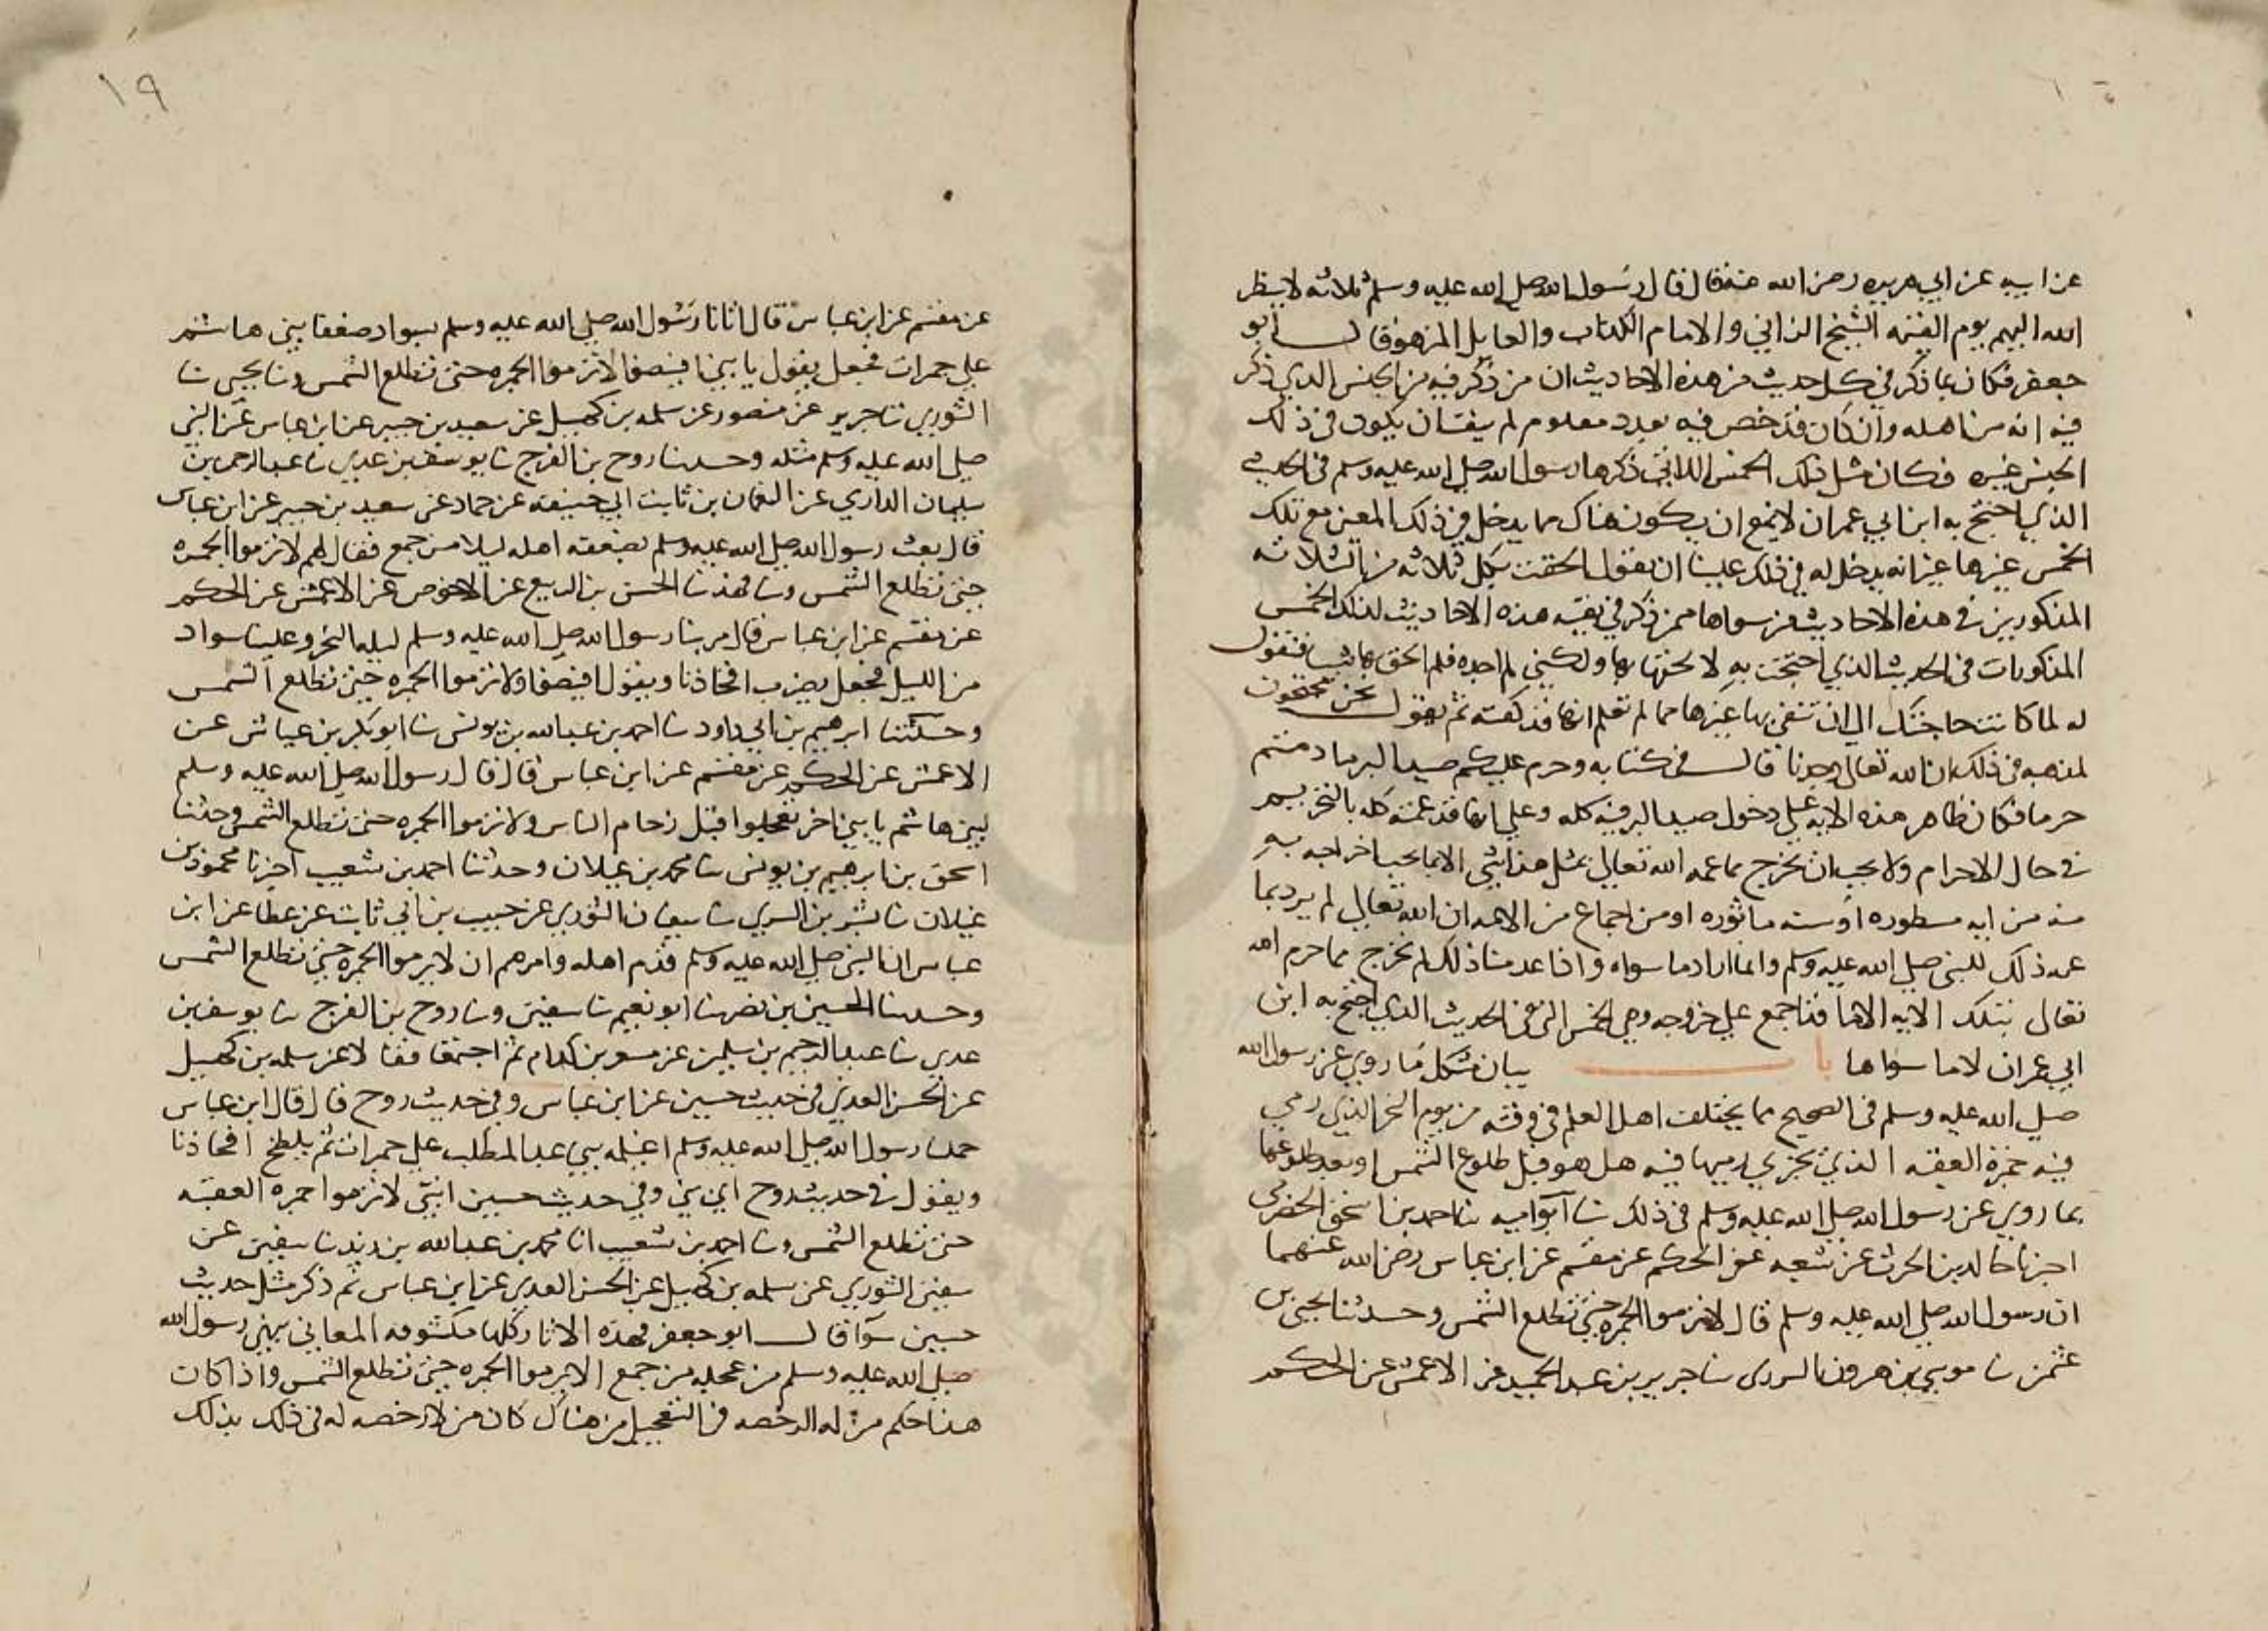 عن ابيه عن ابي هريره رضي الله عنه قال قال رسول الله صلي الله عليه وسلم ثلاثه لا ينظر
الله اليهم يوم القيمه الشيخ الزاني والامام الكذاب والعايل المزهو قال ابو
جعفر فكان ما ذكر في كل حديث من هذه الاحاديث ان من ذكر فيه من الجنس الذي ذكر
فيه انه من اهله وان كان قد خص فيه بعدد معلوم لم ينف ان يكون في ذلك
الجنس غيره فكان مثل ذلك الخمس اللاتي ذكرها رسول الله صلي الله عليه وسلم في الحديث
الذي احتج به ابن ابي عمران لا يمنع ان يكون هناك مما يدخل في ذلك المعني مع تلك
الخمس غيرها غير انه يدخل له في ذلك علينا ان يقول الحقت بكل ثلاثه من الثلاثه
المذكورين في هذه الاحاديث من سواها ممن ذكر في بقيه هذه الاحاديث لذلك الخمس
المذكورات في الحديث الذي احتججت به لا لحقتها بها ولكني لم اجده فلم الحق بها شيا فنقول
له لما كانت حاجتك الي ان تنفي بها غيرها مما لم تعلم انها قد كفته ثم نقول نحن محتجون
لمذهبه في ذلك ان الله تعالي وجدنا قال في كتابه وحرم عليكم صيد البر ما دمتم
حرما فكان ظاهر هذه الايه علي دخول صيد البر فيه كله وعلي انها قد عمته كله بالتحريم
في حال الاحرام ولا يجب ان يخرج مما عمه الله تعالي بمثل هذا شي الا ما يجب اخراجه به
منه من ايه مسطوره او سنه ماثوره او من اجماع من الامه ان الله تعالي لم يرد بما
عمه ذلك للنبي صلي الله عليه وسلم وانما اراد ما سواه واذا عدمنا ذلك لم نخرج مما حرم الله
تعالي بتلك الايه الا ما قد اجمع علي خروجه وهي الخمس التي في الحديث الذي احتج به ابن
ابي عمران لا ما سواها با بيان مشكل ما روي عن رسول الله
صلي الله عليه وسلم في الصحيح مما يختلف اهل العلم في وقته من يوم النحر الذي رمي
فيه جمرة العقبه الذي يجزي رميها فيه هل هو قبل طلوع الشمس او بعد طلوعها
بما روي عن رسول الله صلي الله عليه وسلم في ذلك ثنا ابو اميه ثنا احمد بن اسحق الحضرمي
اخبرنا خالد بن الحرث عن شعبه عن الحكم عن مقسم عن ابن عباس رضي الله عنهما
ان رسول الله صلي الله عليه وسلم قال لا ترموا الجمره حتي تطلع الشمس وحدثنا يحيي بن
عثمن ثنا موسي بن هرون البردي ثنا جرير بن عبد الحميد عن الاعمش عن الحكم
١٩
عن مقسم عن ابن عباس قال اتانا رسول الله صلي الله عليه وسلم بسواد ضعفا بني هاشم
علي حمرات فجعل يقول يا بني افيضوا لا ترموا الجمره حتي تطلع الشمس وثنا يحيي ثنا
الثوري ثنا جرير عن منصور عن سلمه بن كهيل عن سعيد بن جبير عن ابن عباس عن النبي
صلي الله عليه وسلم مثله وحدثنا روح بن الفرج ثنا يوسف بن عدي ثنا عبد الرحمن بن
سليمان الداري عن النعمان بن ثابت ابي حنيفه عن حماد عن سعيد بن جبير عن ابن عباس
قال بعث رسول الله صلي الله عليه وسلم بضعفه اهله ليلا من جمع فقال لهم لا ترموا الجمره
حتي تطلع الشمس وثنا فهد ثنا الحسن بن الربيع عن الاحوص عن الاعمش عن الحكم
عن مقسم عن ابن عباس قال مر بنا رسول الله صلي الله عليه وسلم ليله النحر وعلينا سواد
من الليل فجعل يضرب افخاذنا ويقول افيضوا ولا ترموا الجمره حتي تطلع الشمس
وحدثنا ابرهيم بن ابي داود ثنا احمد بن عبد الله بن يونس ثنا ابو بكر بن عياش عن
الاعمش عن الحكم عن مقسم عن ابن عباس قال قال رسول الله صلي الله عليه وسلم
لبني هاشم يا بني اخي تعجلوا قبل زحام الناس ولا ترموا الجمره حتي تطلع الشمس وحدثنا
اسحق بن ابرهيم بن يونس ثنا محمد بن غيلان وحدثنا احمد بن شعيب اخبرنا محمود بن
غيلان ثنا بشر بن السري ثنا سفيان الثوري عن حبيب بن ابي ثابت عن عطا عن ابن
عباس ان النبي صلي الله عليه وسلم قدم اهله وامرهم ان لا يرموا الجمره حتي تطلع الشمس
وحدثنا الحسين بن نصر ثنا ابو نعيم ثنا سفين وثنا روح بن الفرج ثنا يوسف بن
عدي ثنا عبد الرحيم بن سليمن عن مسعر بن كدام ثم اجتمعا فقالا عن سلمه بن كهيل
عن الحسن العدني في حديث حسين عن ابن عباس وفي حديث روح قال قال ابن عباس
حملنا رسول الله صلي الله عليه وسلم اغيلمه بني عبد المطلب علي حمرات ثم يلطخ افخاذنا
ويقول في حديث روح ابي بني وفي حديث حسين ابني لا ترموا جمره العقبه
حتي تطلع الشمس وثنا احمد بن شعيب انا محمد بن عبد الله بن يزيد ثنا سفين عن
سفين الثوري عن سلمه بن كهيل عن الحسن العدني عن ابن عباس ثم ذكر مثل حديث
حسين سوا قال ابو جعفر فهذه الاثار كلها مكشوفه المعاني بنهي رسول الله
صلي الله عليه وسلم من عجله من جمع الا يرموا الجمره حتي تطلع الشمس واذا كان
هذا حكم من له الرخصه في التعجيل من هناك كان من لا رخصه له في ذلك بذلك